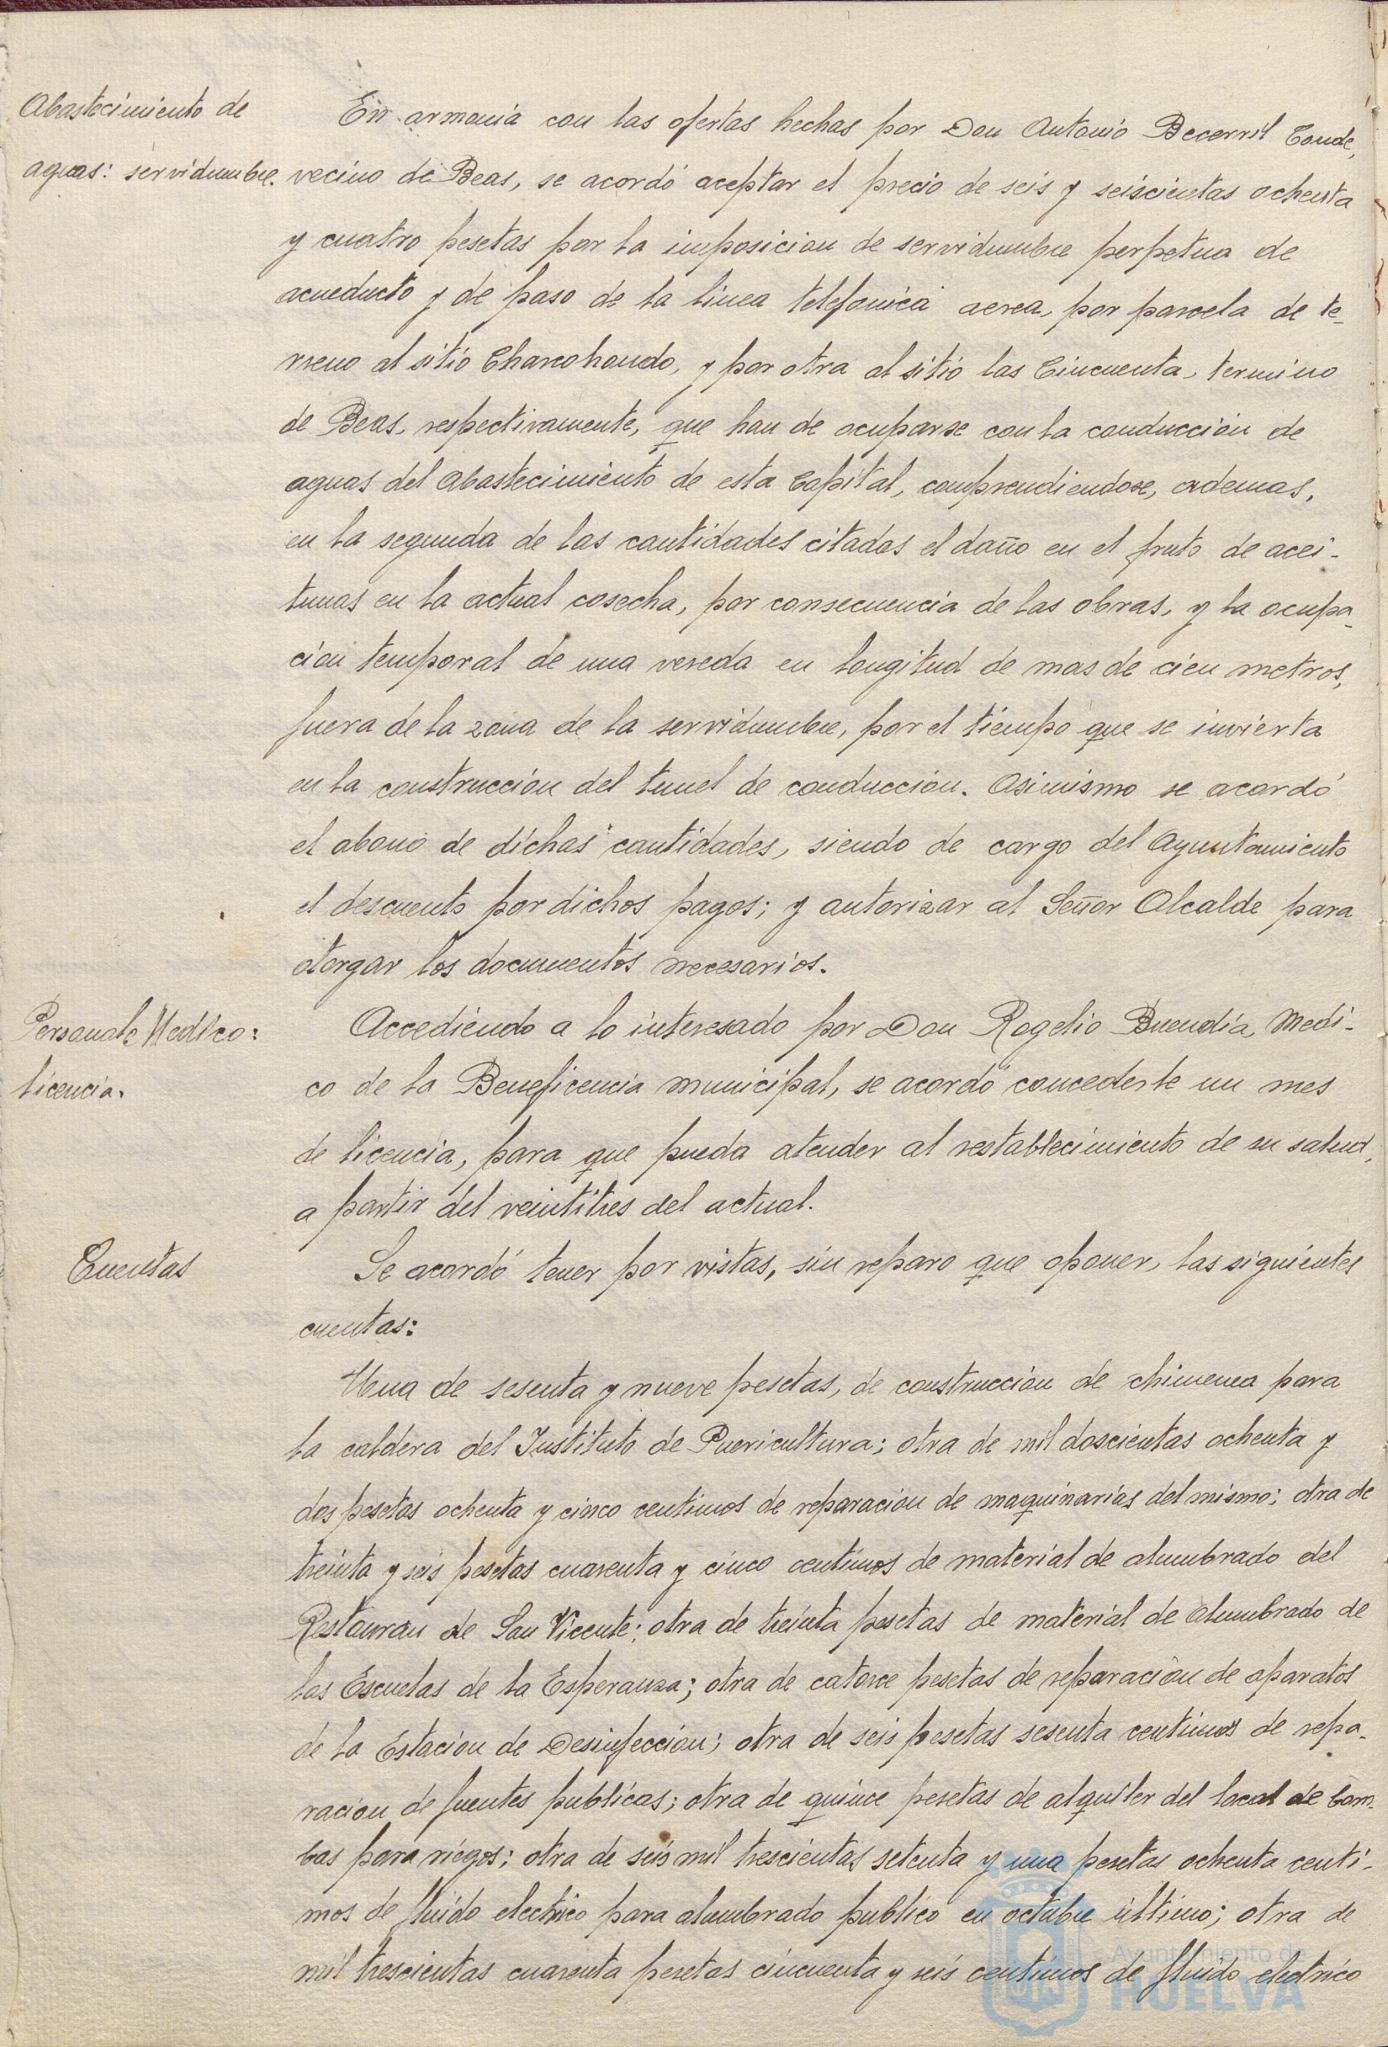 Abastecimiento de
aguas: servidumbre.
En armonia con las ofertas hechas por Don Antonio Becerril Conde,
vecino de Beas, se acordó aceptar el precio de seis y seiscientas ochenta
y cuatro pesetas por la imposicion de servidumbre perpetua de
acueducto y de paso de la linea telefonica aerea, por parcela de te-
rreno al sitio Charcohondo, y por otra al sitio las Cincuenta, termino
de Beas, respectivamente, que han de ocuparse con la conducción de
aguas del Abastecimiento de esta Capital, comprendiendose, ademas,
en la segunda de las cantidades citadas el daño en el fruto de acei-
tunas en la actual cosecha, por consecuencia de las obras, y la ocupa-
cion temporal de una vereda en longitud de mas de cien metros,
fuera de la zona de la servidumbre, por el tiempo que se invierta
en la construccion del tunel de conducción. Asimismo se acordó
el abono de dichas cantidades, siendo de cargo del Ayuntamiento
el descuento por dichos pagos; y autorizar al Señor Alcalde para
otorgar los documentos necesarios.
Personal: Medico:
licencia.
Accediendo a lo interesado por Don Rogelio Buendía, Medi-
co de la Beneficencia municipal, se acordó concederle un mes
de licencia, para que pueda atender al restablecimiento de su salud,
a partir del veintitres del actual.
Cuentas
Se acordó tener por vistas, sin reparo que oponer, las siguientes
cuentas:
Una de sesenta y nueve pesetas, de construccion de chimenea para
la caldera del Instituto de Puericultura; otra de mil doscientas ochenta y
dos pesetas ochenta y cinco centimos de reparacion de maquinarias del mismo; otra de
treinta y seis pesetas cuarenta y cinco centimos de material de alumbrado del
Restauran de San Vicente; otra de treinta pesetas de material de alumbrado de
las Escuelas de la Esperanza; otra de catorce pesetas de reparación de aparatos
de la Estacion de Desinfeccion; otra de seis pesetas sesenta centimos de repa-
racion de fuentes publicas; otra de quince pesetas de alquiler del local de bom-
bas para riegos; otra de seis mil trescientas setenta y una pesetas ochenta centi-
mos de fluido electrico para alumbrado publico en octubre ultimo; otra de
mil trescientas cuarenta pesetas cincuenta y seis centimos de fluido electrico
Ayuntamiento de
HUELVA